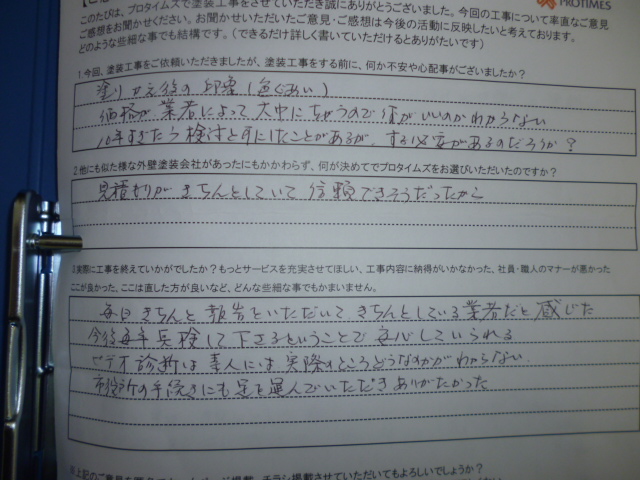 PROTIMES
このたびは、プロタイムズで塗装工事をさせていただき誠にありがとうございました。今回の工事について率直なご意見
ご感想をお聞かせください。お聞かせいただいたご意見・ご感想は今後の活動に反映したいと考えております。
どのような些細な事でも結構です。(できるだけ詳しく書いていただけるとありがたいです)
1.今回、塗装工事をご依頼いただきましたが、塗装工事をする前に、何か不安や心配事がございましたか?
塗りかえ後の印象(色ぐあい)
価格が業者によって大中にちがうので何がいいのかわからない
10年すぎたら検討と耳にしたことがあるが、する必要があるのだろうか?
2.他にも似た様な外壁塗装会社があったにもかかわらず、何が決めてでプロタイムズをお選びいただいたのですか?
見積りがきちんとしていて信頼できそうだったから
3.実際に工事を終えていかがでしたか?もっとサービスを充実させてほしい、工事内容に納得がいかなかった、社員・職人のマナーが悪かった
ここが良かった、ここは直した方が良いなど、どんな些細な事でもかまいません。
毎日きちんと報告をいただいてきちんとしている業者だと感じた
今後毎年点検して下さるということで安心していられる
ビデオ診断は素人には実際のところどうなのかがわからない
市役所の手続きにも足を運んでいただきありがたかった